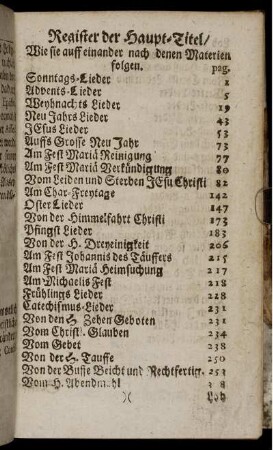 Register der Haupt-Titel/
Wie sie auff einander nach denen Materien
folgen. pag.
Sonntags-Lieder 1
Advents-Lieder 5
Weyhnachts Lieder 19
Neu Jahrs Lieder 43
JEsus Lieder 53
Auffs Grosse Neu Jahr 73
Am Fest Mariä Reinigung 77
Am Fest Mariä Verkündigung 80
Vom Leiden und Sterben JEsu Christi 82
Am Char-Freytage 142
Oster Lieder 147
Von der Himmelfahrt Christi 173
Pfingst Lieder 183
Von der H. Dreyeinigkeit 206
Am Fest Johannis des Täuffers 215
Am Fest Mariä Heimsuchung 217
Am Michaelis Fest 218
Frühlings Lieder 228
Catechismus-Lieder 231
Von den H. Zehen Geboten 231
Vom Christl. Glauben 234
Vom Gebet 238
Von der H. Tauffe 250
Von der Busse Beicht und Rechtfertig. 253
Vom H. Abendmahl
)( Lob